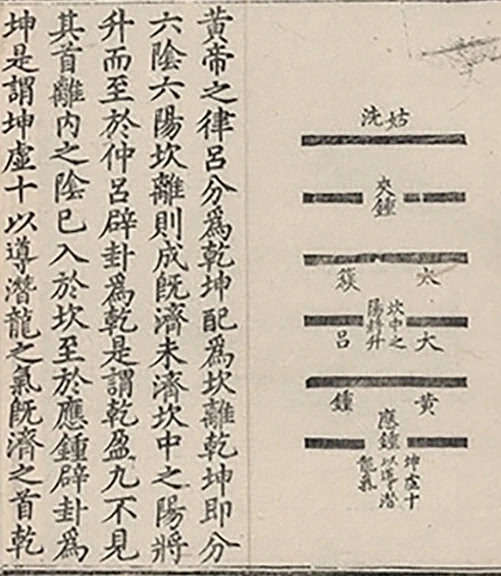 姑洗
夾鍾
太簇
坎中之
陽將升
大呂
黃鍾
應鍾
坤虛十
以導潛
龍氣
黃帝之律呂分爲乾坤配爲坎離乾坤即分
六陰六陽坎離則成既濟未濟坎中之陽將
升而至於仲呂辟卦爲乾是謂乾盈九不見
其首離內之陰已入於坎至於應鍾辟卦爲
坤是謂坤虛十以導潛龍之氣既濟之首乾